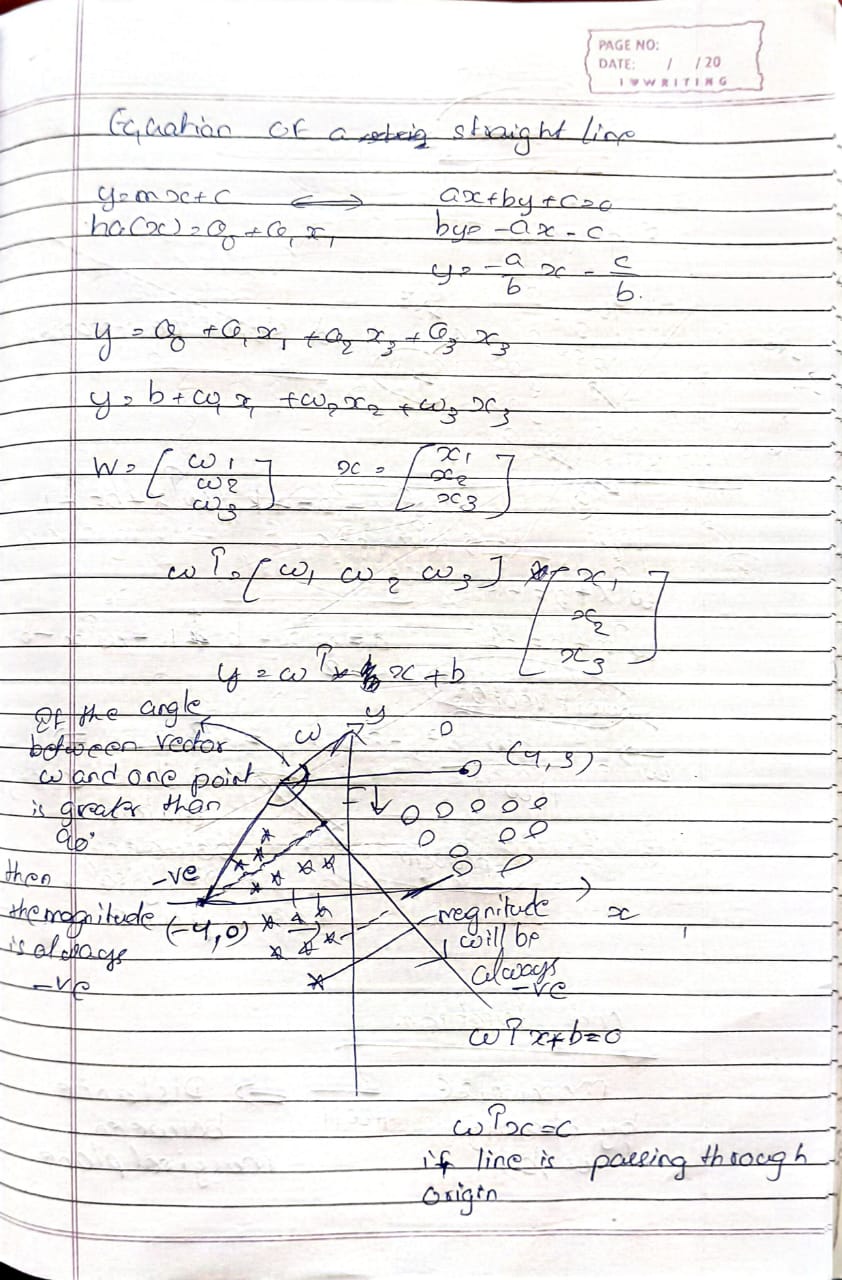 PAGE NO:
DATE: / / 20
I ♥ WRITING
Equation of a straight line
y=mx+c ⟷ ax+by+c=0
hθ(x)=θ₀+θ₁x₁ by=-ax-c
y=-a/b x - c/b.
y=θ₀+θ₁x₁+θ₂x₃+θ₃x₃
y=b+ω₁x₁+ω₂x₂+ω₃x₃
W=[ω1 ω2 ω3] x=[x1 x2 x3]
ωT=[ω₁ ω₂ ω₃] [x₁ x₂ x₃]
y=ωT x+b
If the angle
between vector
ω and one point
is greater than
90°
then
the magnitude
is always
-ve
ω
y
(4,3)
-ve
(-4,0)
x
magnitude
will be
always
-ve
ωTx+b=0
ωTx=c
if line is passing through
origin